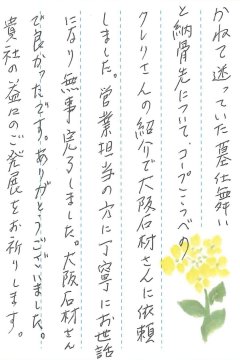 かねて迷っていた墓仕舞い
と納骨先について、コープこうべの
クレリさんの紹介で大阪石材さんに依頼
しました。営業担当の方に丁寧にお世話
になり無事完了しました。大阪石材さん
で良かったです。ありがとうございました。
貴社の益々のご発展をお祈りします。